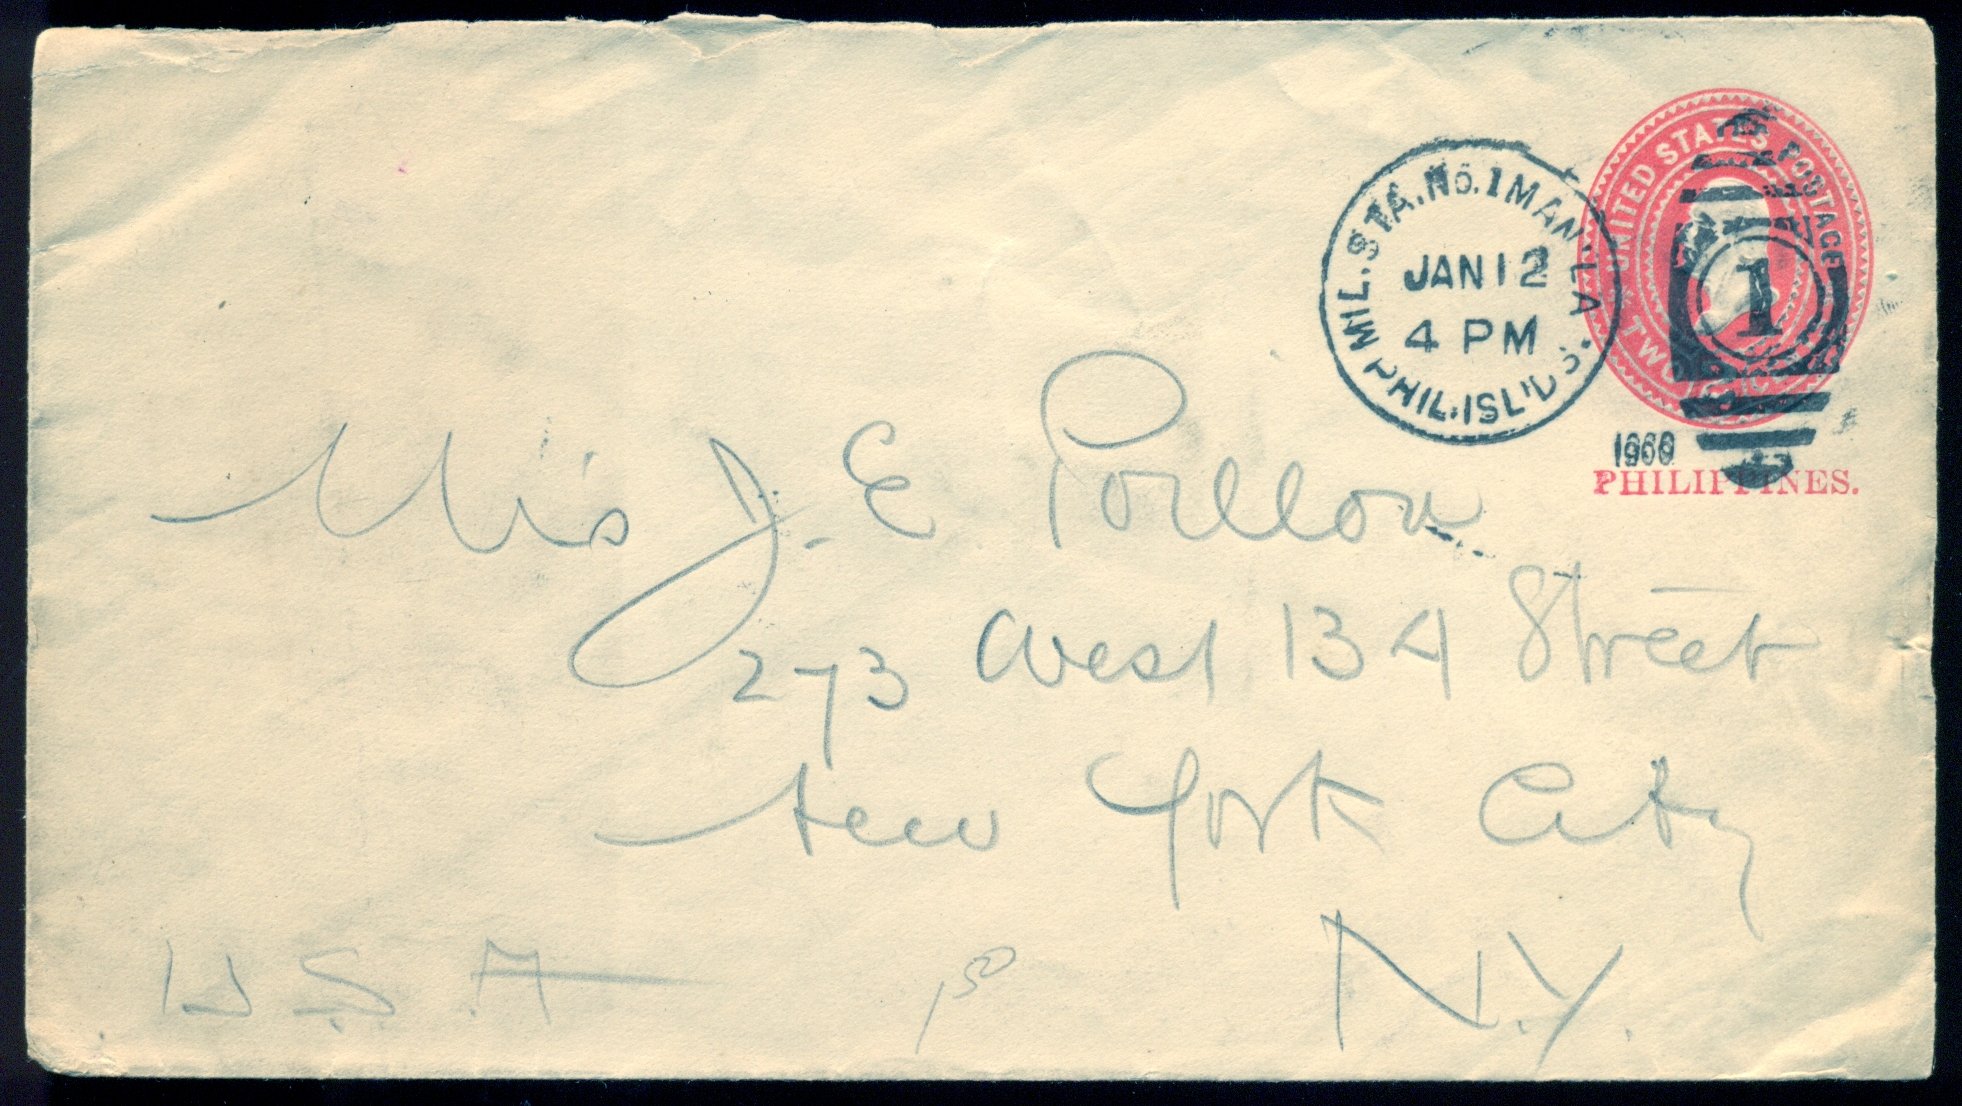 UNITED STATES POSTAGE
TWO CENTS
1
MIL. STA. No. 1 MANILA
JAN 12
4 PM
PHIL. ISL'DS.
1900
PHILIPPINES.
Mrs J. E Poillon
273 West 134 Street
New York City
N.Y.
U.S.A